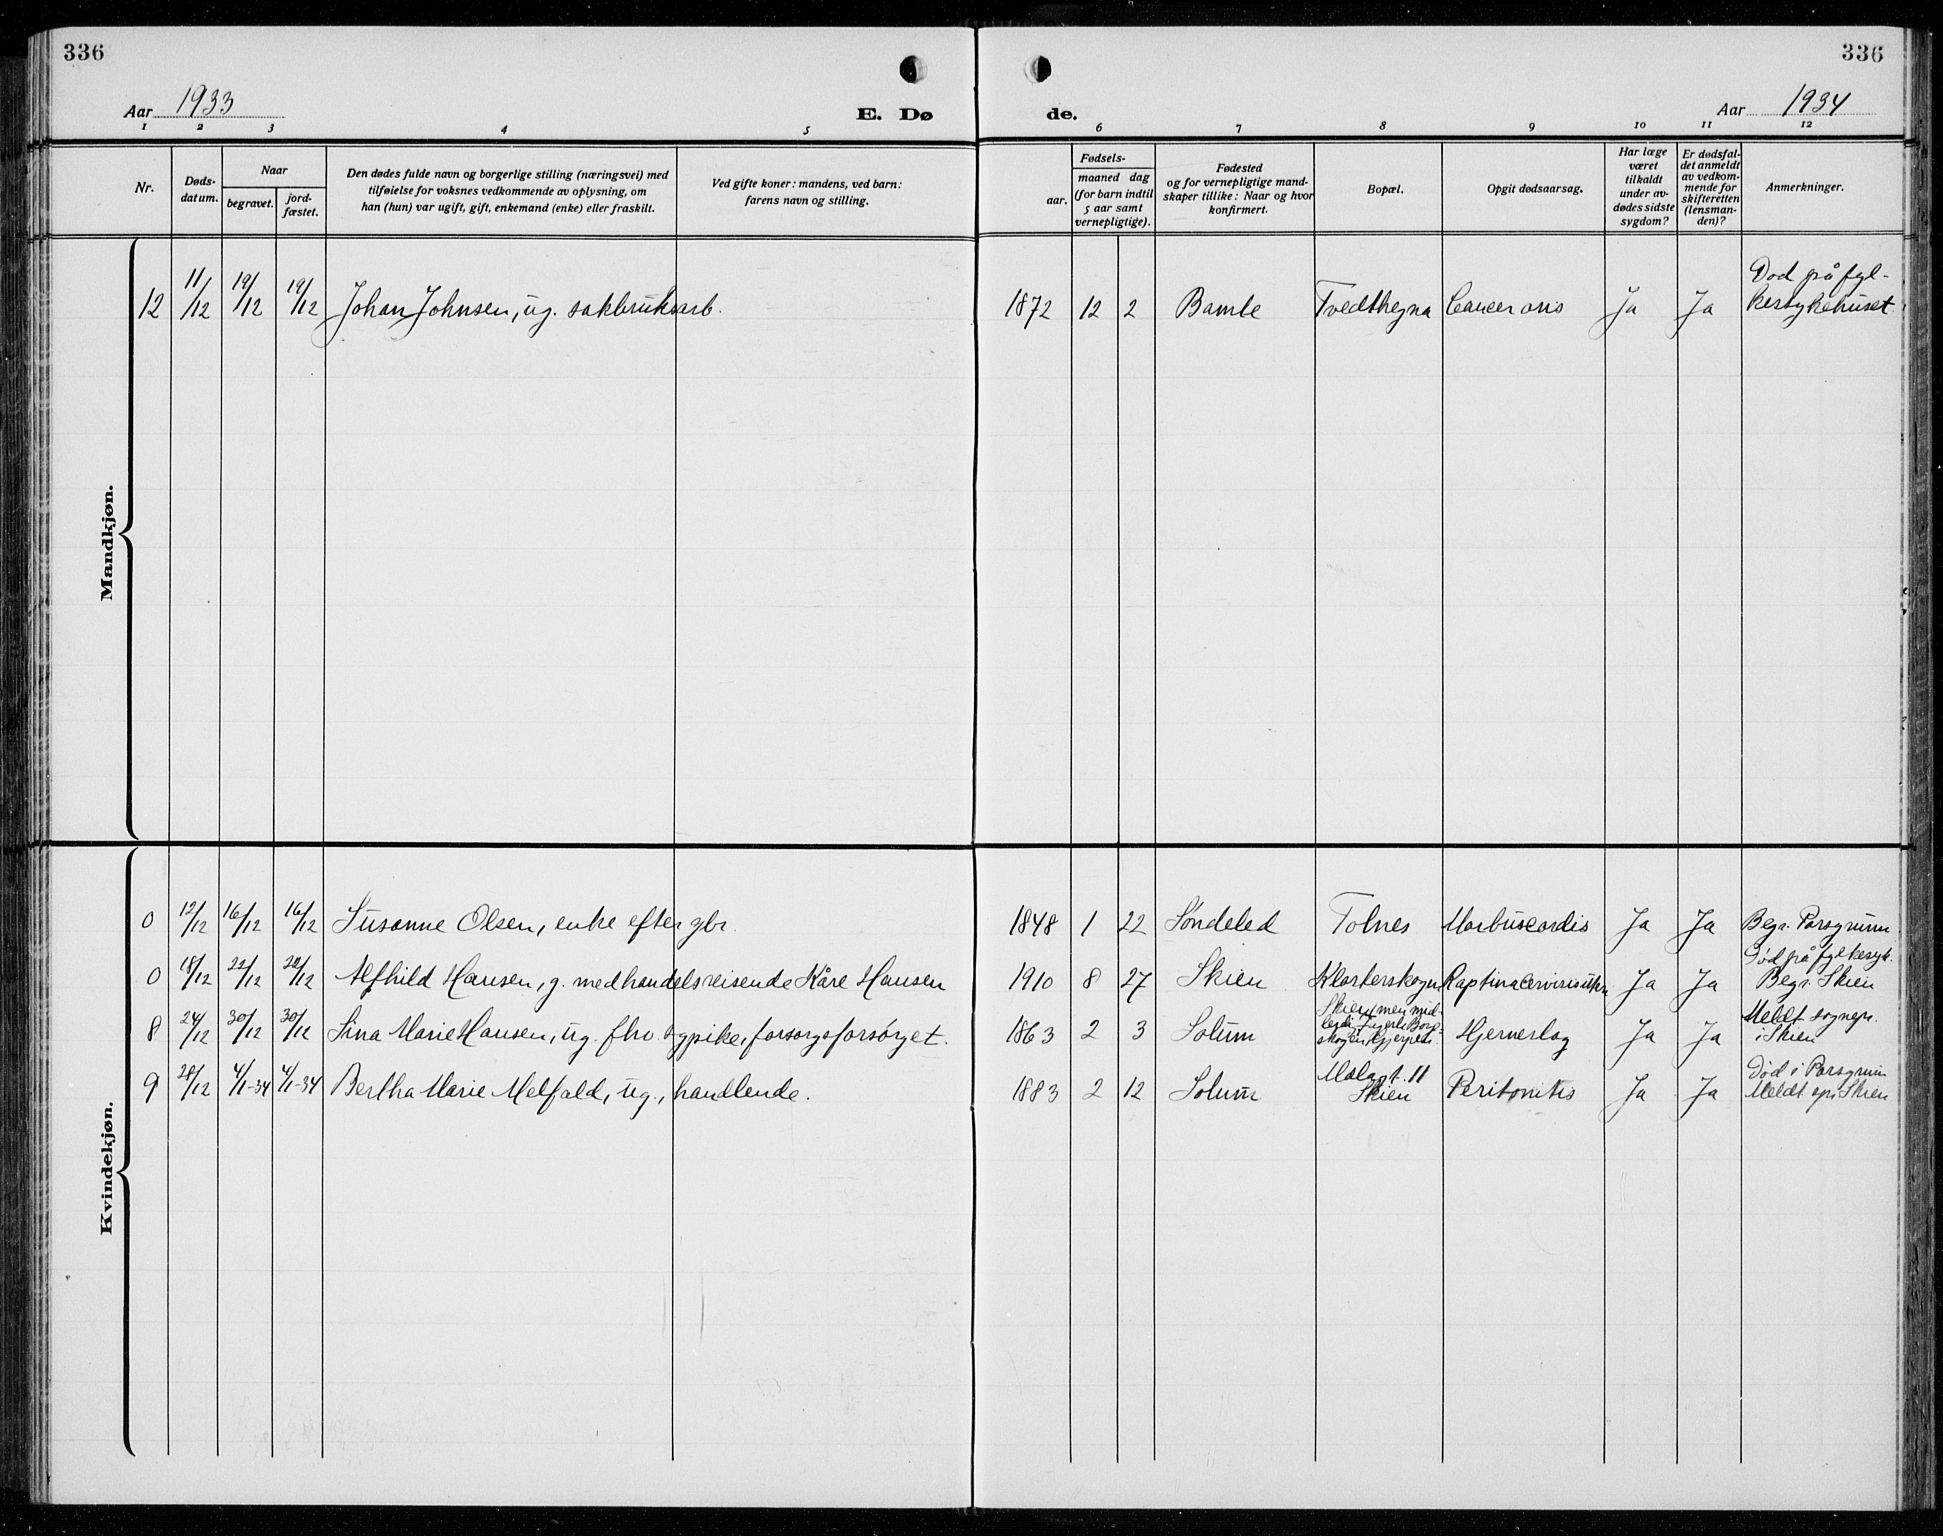 336
336
Aar 1933
E. Dø
de.
Aar 1934
1 2 3 4 5 6 7 8 9 10 11 12
Nr.
Døds-
datum.
Naar
begravet.
jord-
fæstet.
Den dødes fulde navn og borgerlige stilling (næringsvei) med
tilføielse for voksnes vedkommende av oplysning, om
han (hun) var ugift, gift, enkemand (enke) eller fraskilt.
Ved gifte koner: mandens, ved barn:
farens navn og stilling.
Fødsels-
aar.
maaned dag
(for barn indtil
5 aar samt
vernepligtige).
Fødested
og for vernepligtige mand-
skaper tillike: Naar og hvor
konfirmert.
Bopæl.
Opgit dødsaarsag.
Har læge
været
tilkaldt
under av-
dødes sidste
sygdom?
Er dødsfal-
det anmeldt
av vedkom-
mende for
skifteretten
(lensman-
den)?
Anmerkninger.
Mandkjøn.
12 11/12 19/12 19/12 Johan Johnsen, ug. sakbruksarb. 1872 12 2 Bamle Tvedthegna Cancer oris Ja Ja Død på fyl-
kesykehuset
Kvindekjøn.
0 12/12 16/12 16/12 Susanne Olsen, enke efter gbr. 1848 1 22 Søndeled Tolnes Morbus cordis Ja Ja Begr. Porsgrunn
0 18/12 22/12 22/12 Alfhild Hansen, g. med handelsreisende Kåre Hansen 1910 8 27 Skien Klosterskogen Ja Ja Død på fylkesyk.
Begr. Skien
8 24/12 30/12 30/12 Sina Marie Hansen, ug. fhv. sypike, forsorgsforsørget. 1863 2 3 Solum Skien, men mid-
lertidig Borge-
skogen, Gjerpen Hjerneslag Ja Ja Meldt sognepr.
i Skien
9 28/12 4/1-34 4/1-34 Bertha Marie Melfald, ug., handlende. 1883 2 12 Solum 11
Skien Peritonitis Ja Ja Død i Porsgrunn
Meldt spr. Skien